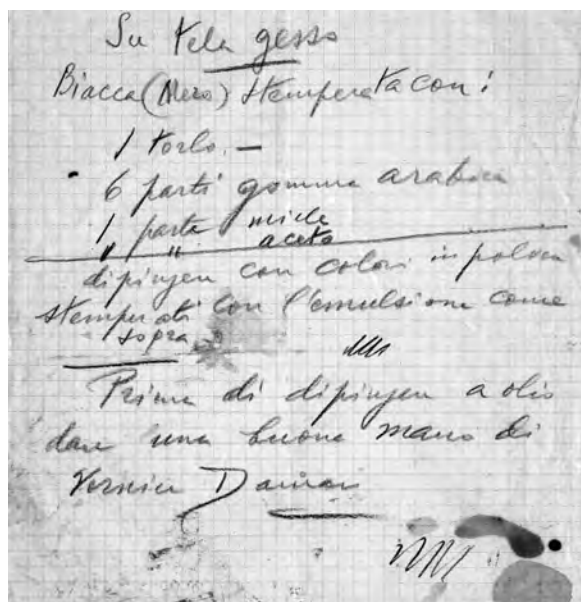 Su tela gesso
Biacca (Nero) stemperata con:
1 torlo. —
6 parti gomma arabica
1 parte miele
" " aceto
dipingere con colori in polvere
stemperati con l'emulsione come
sopra
Prima di dipingere a olio
dare una buona mano di
Vernice Damar